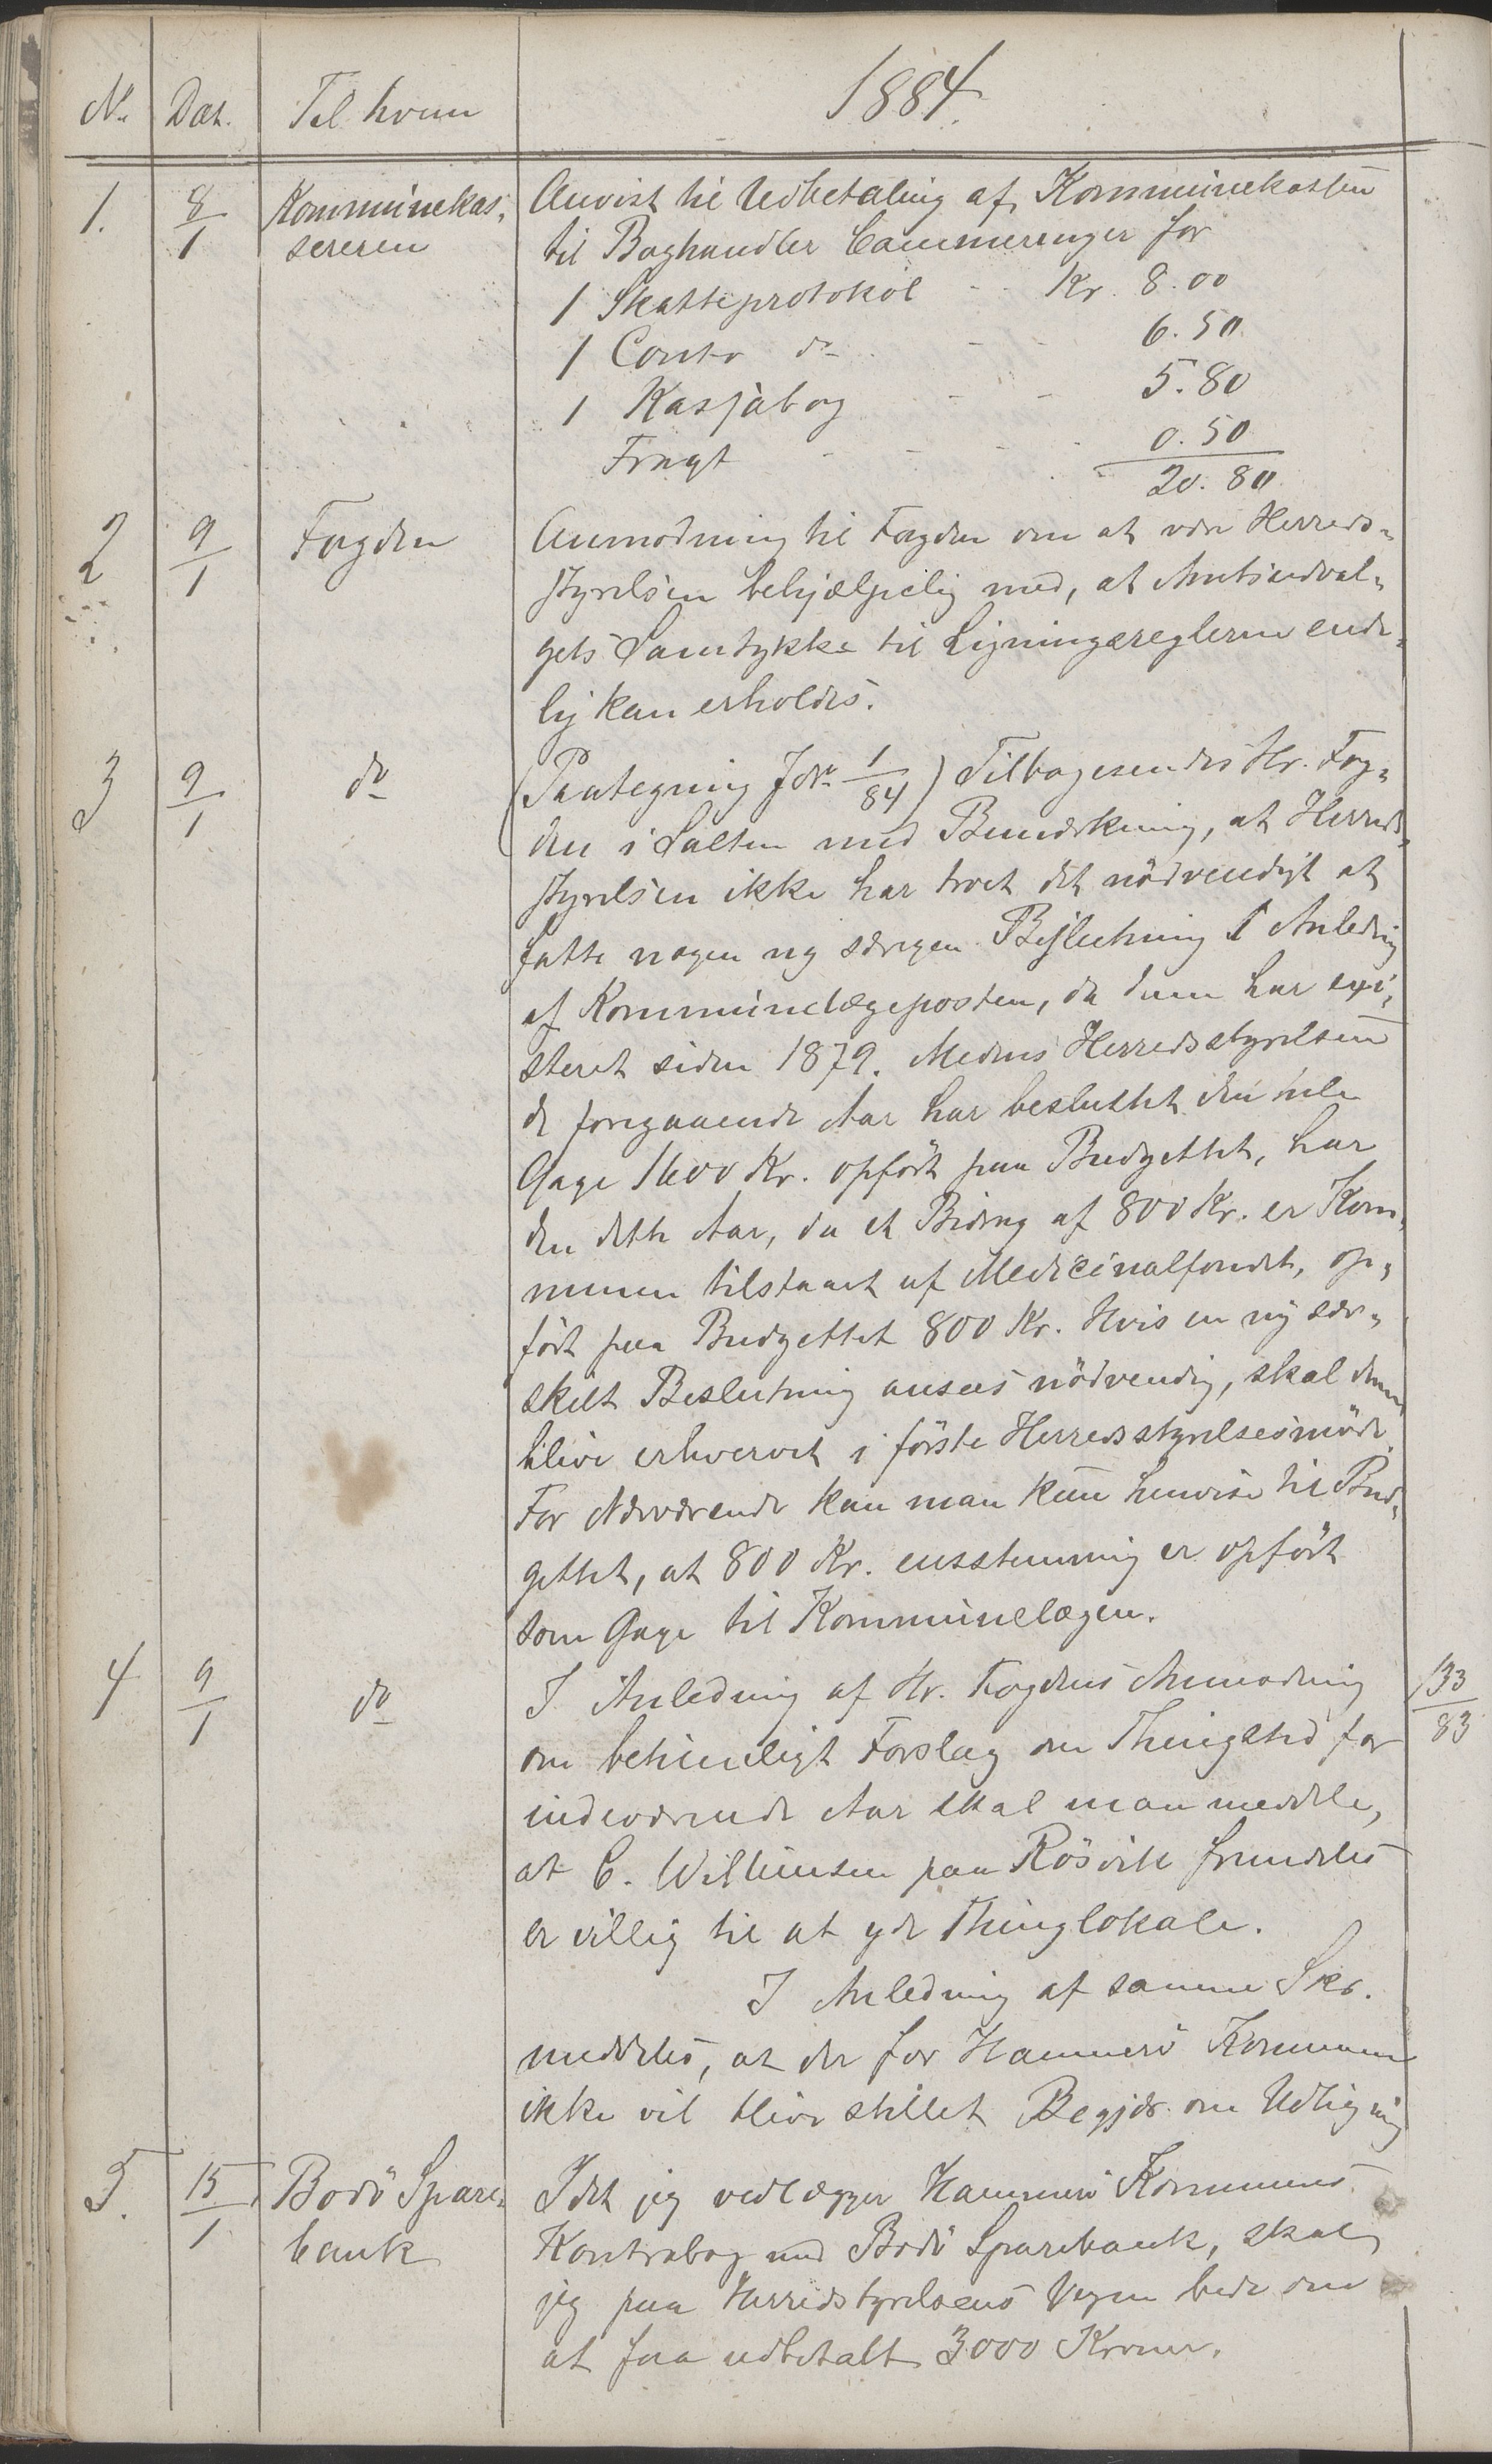 No. Dat. Til hvem 1884.
1. 8/1 Kommunekas-
sereren
Anvist til Udbetaling af Kommunekassen
til Boghandler Cammermeyer for
1 Skatteprotokol - - Kr. 8.00
1 Conto do - - 6.50
1 Kassabog - - 5.80
Fragt - - - - 0.50
20.80
2 9/1 Fogden
Anmodning til Fogden om at være Herreds-
styrelsen behjælpelig med, at Amtsudval-
gets Samtykke til Ligningsreglerne ende-
lig kan erholdes.
3 9/1 do
(Paategning Jdr. 1/84) Tilbagesendes Hr. Fog-
den i Salten med Bemærkning, at Herreds-
styrelsen ikke har troet det nödvendigt at
fatte nogen ny særegen Beslutning i Anledning
af Kommunelægeposten, da denne har exi-
steret siden 1879. Medens Herredsstyrelsen
de foregaaende Aar har besluttet den hele
Gage 1600 Kr. opfört paa Budgettet, har
den dette Aar, da et Bidrag af 800 Kr. er Kom-
munen tilstaaet af Medicinalfondet, op-
fört paa Budgettet 800 Kr. Hvis en ny sær-
skilt Beslutning ansees nödvendig, skal denne
blive erhvervet i förste Herredsstyrelsesmöde.
For Nærværende kan man kun henvise til Bud-
gettet, at 800 Kr. enstemmig er opfört
som Gage til Kommunelægen.
4 9/1 do
I Anledning af Hr. Fogdens Anmodning 133/83
om betimeligt Forslag om Thingsted for
indeværende Aar skal man meddele,
at C. Willumsen paa Rösvik fremdeles
er villig til at yde Thinglokale.
I Anledning af samme Skr.
meddeles, at der for Hammerö Kommune
ikke vil blive stillet Begjær. om Udligning
5. 15/1 Bodö Spare-
bank
Idet jeg vedlægger Hammerö Kommunes
Kontrabog med Bodö Sparebank, skal
jeg paa Herredstyrelsens Vegne bede om
at faa udbetalt 3000 Kroner.